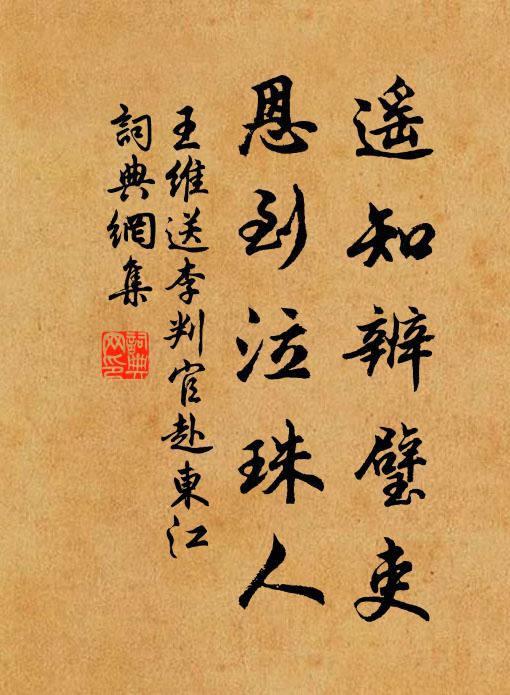 遥知辨璧吏
恩到泣珠人
王維送李判官赴東江
詞典網集
詞典
网印